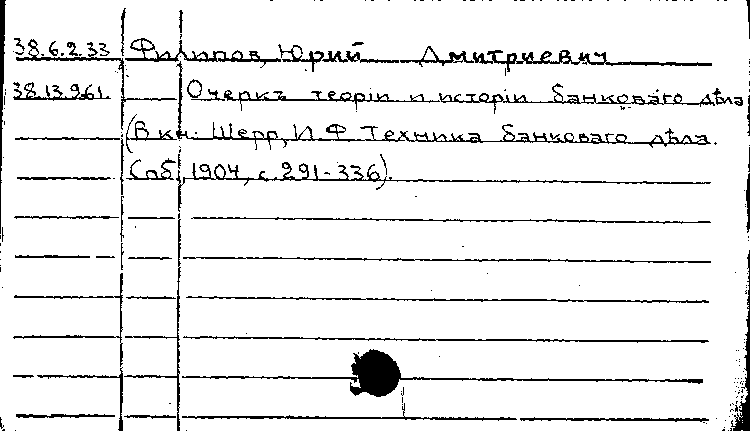 38.6.2.33 Филипов, Юрий Дмитриевич
38.13.961. Очеркъ теоріи и исторіи банковаго дѣла
(В кн: Шерр, И.Ф. Техника банковаго дѣла.
Спб, 1904, с. 291-336).